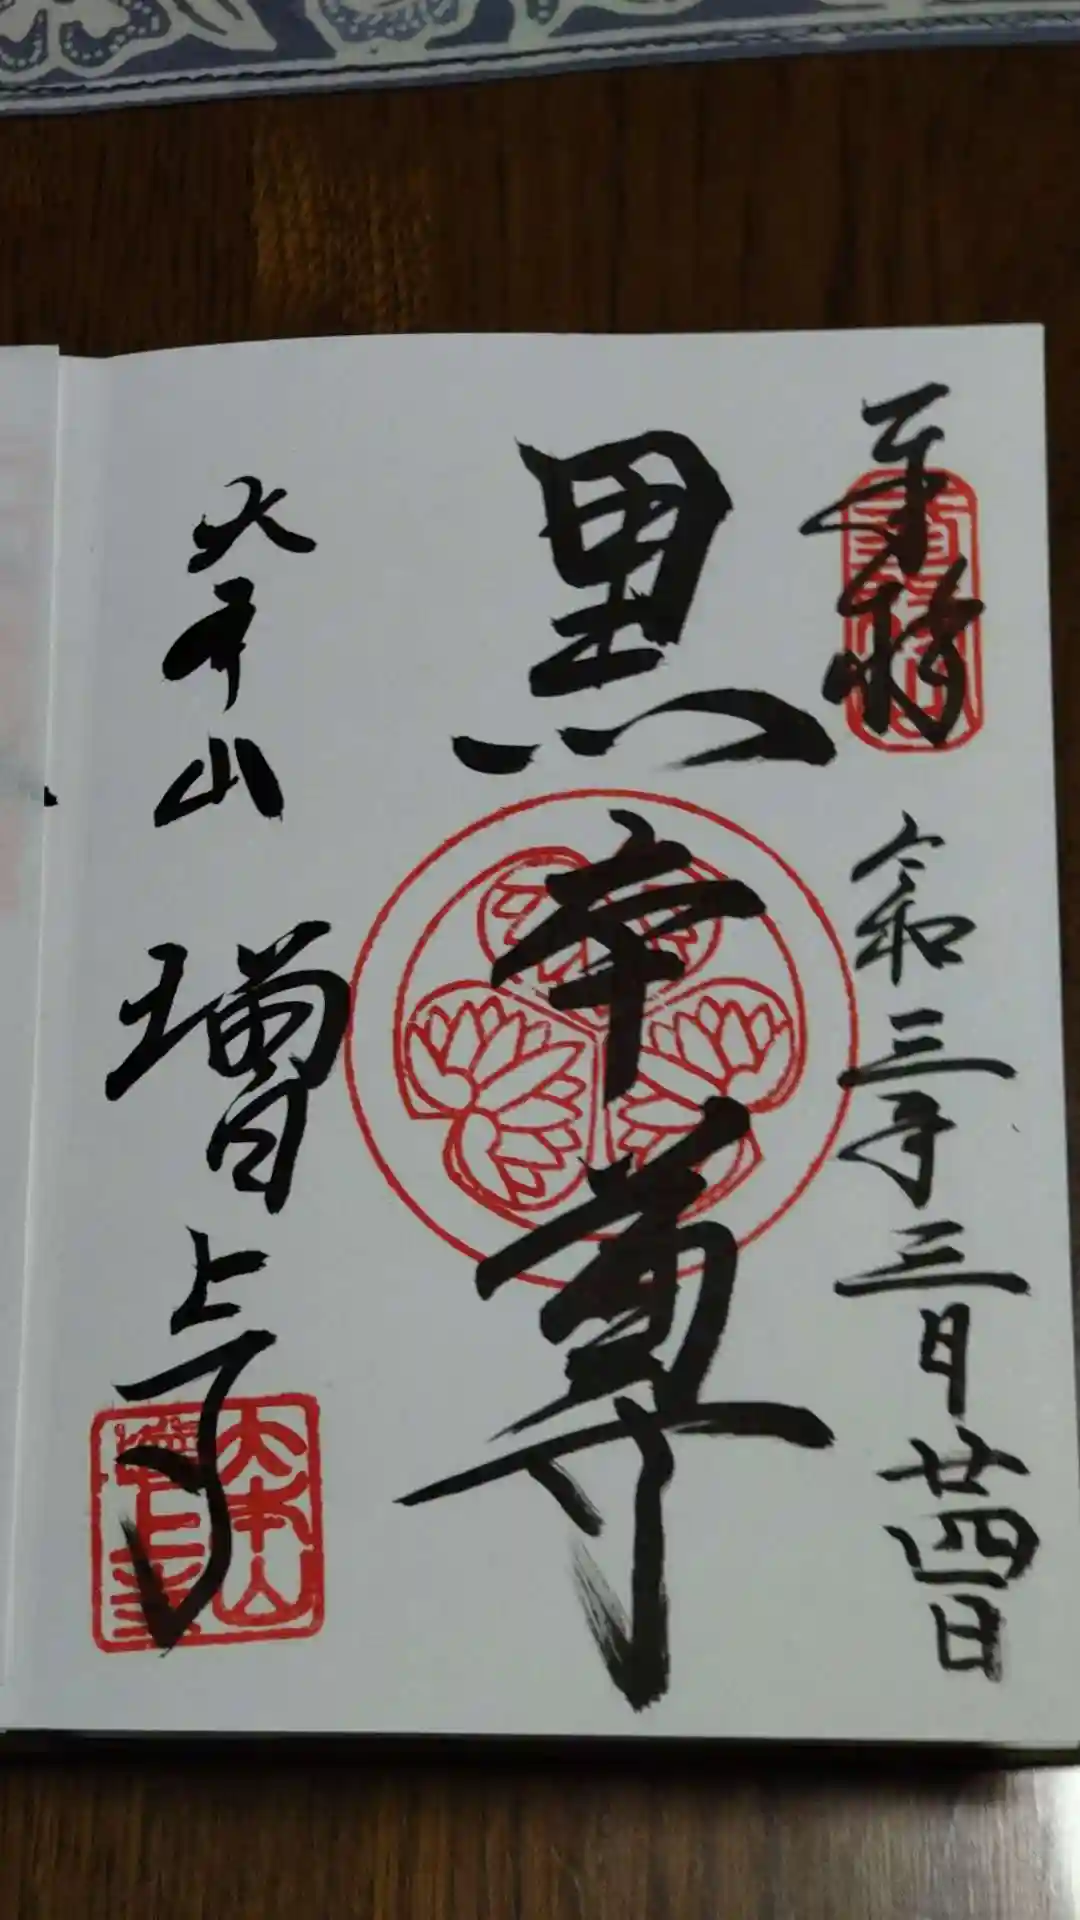 奉拝
令和三年三月廿四日
黒本尊
大本山 増上寺
大本山
増上寺